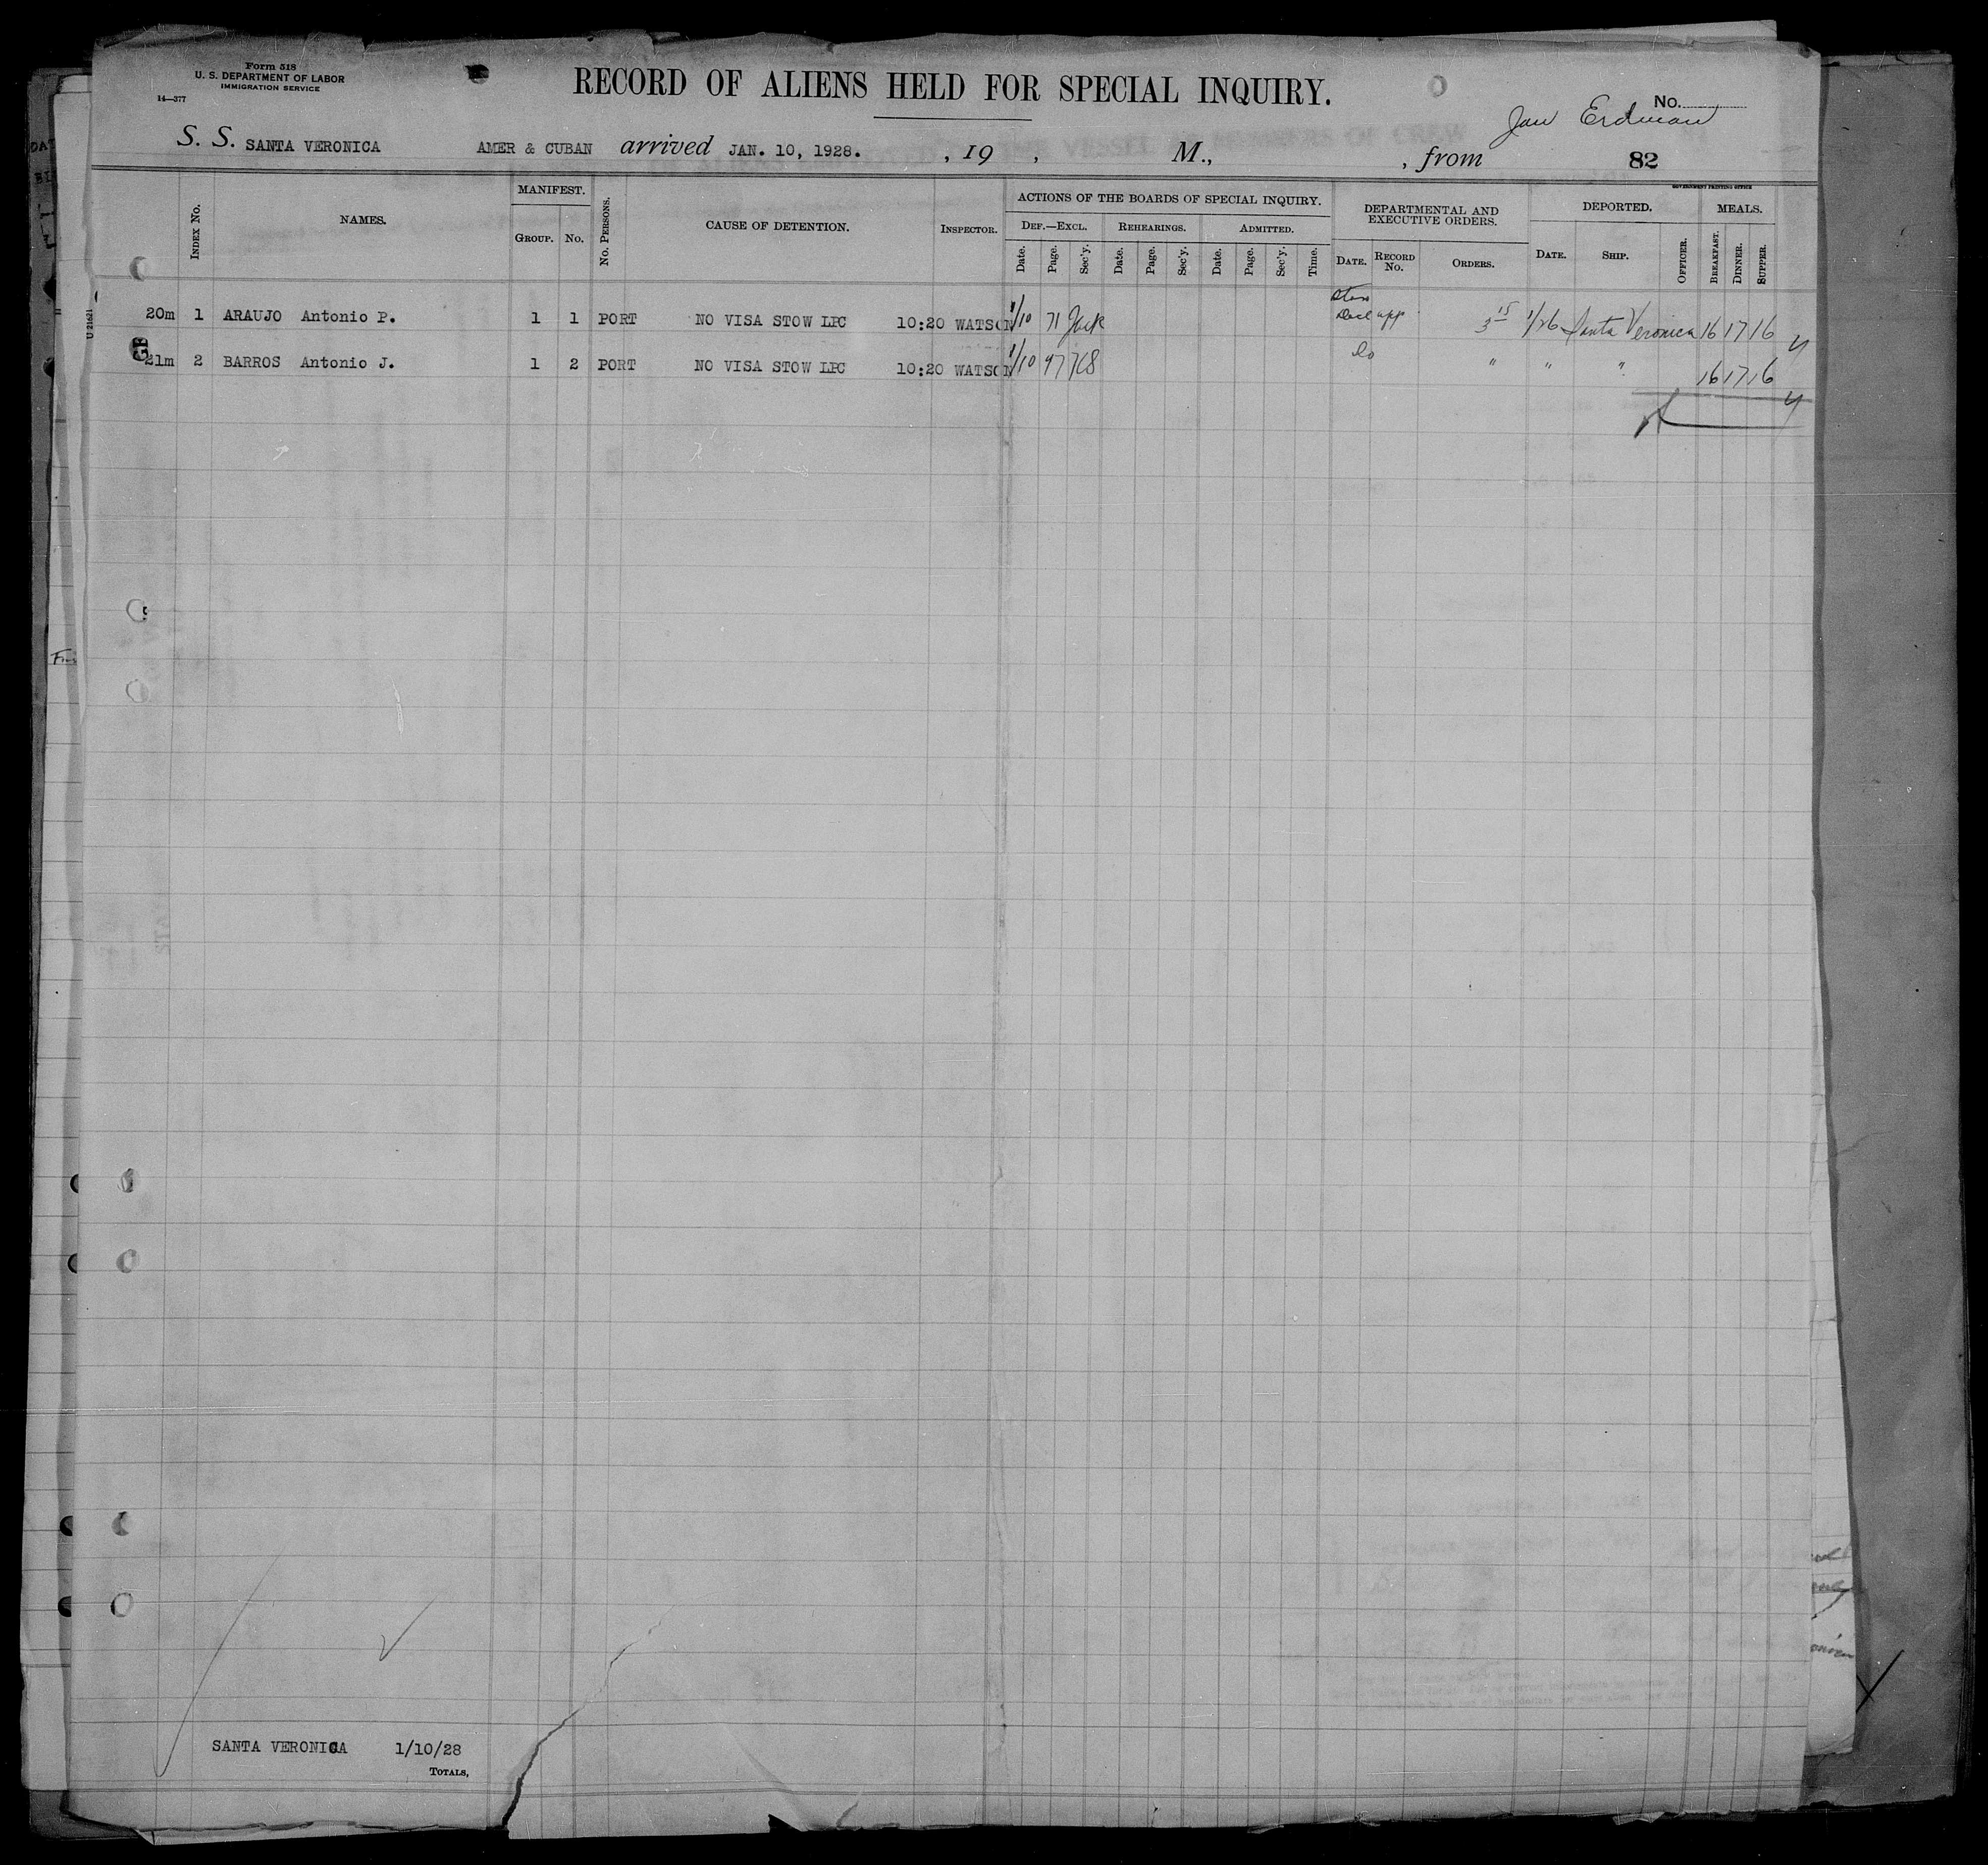 Form 518
U. S. DEPARTMENT OF LABOR
IMMIGRATION SERVICE
14—377
RECORD OF ALIENS HELD FOR SPECIAL INQUIRY.
No.
Jan Erdman
S. S. SANTA VERONICA AMER & CUBAN arrived JAN. 10, 1928. , 19 , M., , from 82
GOVERNMENT PRINTING OFFICE
INDEX No. NAMES. MANIFEST. GROUP. No. No. PERSONS. CAUSE OF DETENTION. INSPECTOR.
ACTIONS OF THE BOARDS OF SPECIAL INQUIRY.
DEF.—EXCL. REHEARINGS. ADMITTED.
Date. Page. Sec'y. Date. Page. Sec'y. Date. Page. Sec'y. Time.
DEPARTMENTAL AND EXECUTIVE ORDERS.
DATE. RECORD No. ORDERS.
DEPORTED.
DATE. SHIP. OFFICER.
MEALS.
BREAKFAST. DINNER. SUPPER.
U 21621
20m 1 ARAUJO Antonio P. 1 1 PORT NO VISA STOW LPC 10:20 WATSON 1/10 71 3 15 1/26 Santa Veronica 16 17 16
21m 2 BARROS Antonio J. 1 2 PORT NO VISA STOW LPC 10:20 WATSON 1/10 Do " " " 16 17 16
SANTA VERONICA 1/10/28
TOTALS,